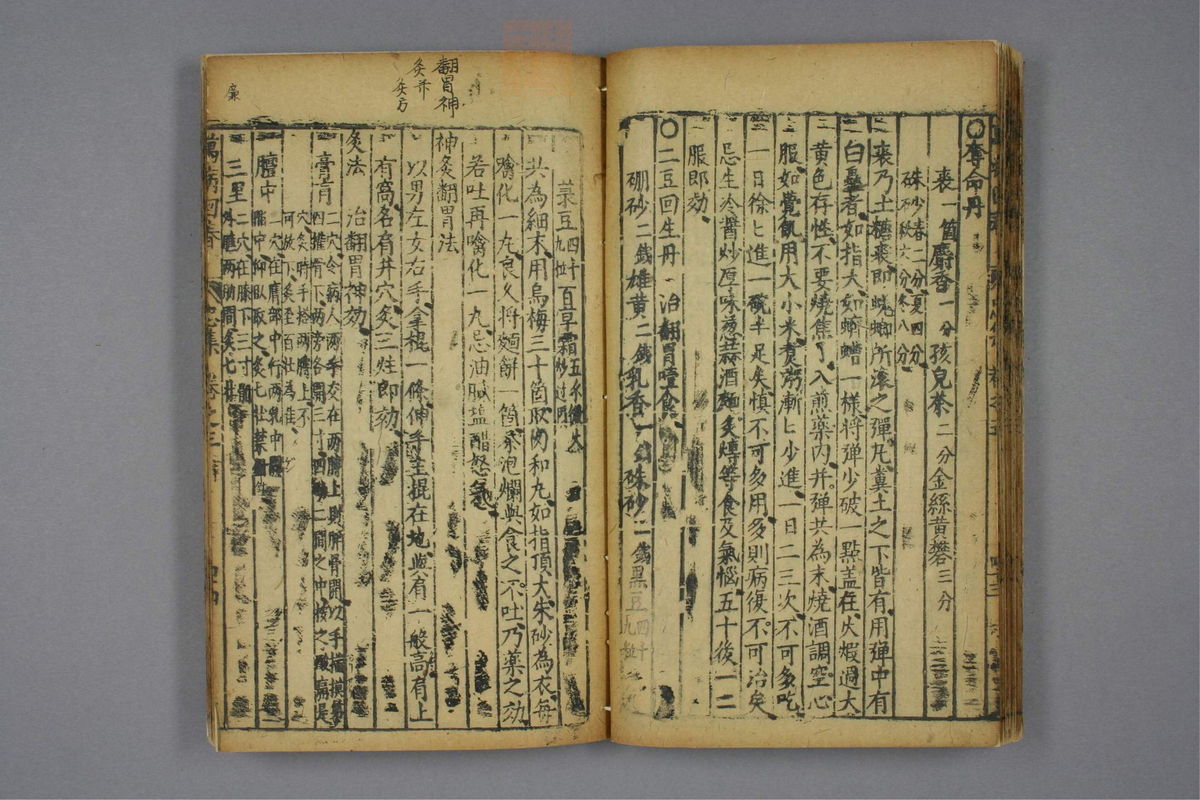 ○奪命丹
裘一箇麝香一分孩兒茶二分金絲黃礬三分
硃砂春二分夏四分秋六分冬八分
裘乃土糖裘即蜣螂所滾之彈凡糞土之下皆有用彈中有
白蟲者如指大如蠐螬一樣將彈少破一點蓋在火煆過大
黃色存性不要燒焦了入煎藥內并彈共為末燒酒調空心
服如覺飢用大小米煮粥漸匕少進一日二三次不可多吃
一日徐匕進一碗半足矣慎不可多用多則病復不可治矣
忌生冷醬炒厚味葱蒜酒麵炙煿等食及氣惱五十後一二
服即効
○二豆回生丹 治翻胃噎食
硼砂二錢雄黃二錢乳香一錢硃砂二錢黑豆四十九粒
菉豆四十九粒百草霜五
共為細末用烏梅三十箇取肉和丸如指頂大朱砂為衣每
噙化一丸良久將麵餅一箇泡爛與食之不吐乃藥之効
若吐再噙化一丸忌油鹹盐醋怒氣
神灸翻胃法
以男左女右手拿棍一條伸手主棍在地有一般高肩上
有窩名肩井穴灸三壯即効
灸法 治翻胃神効
膏肓 二穴令病人兩手交在兩膊上則胛骨開以手揣摸
四椎骨下兩傍各開三寸四肋二間之中按之酸痛是
穴灸時手搭兩膊上不可放下灸至百壯為佳
膻中 二穴在膺部中行兩乳中間陷中仰臥取之灸七壯
三里 二穴在膝下三寸外廉兩筋間灸七壯
萬病回春
翻胃神
灸井
灸方